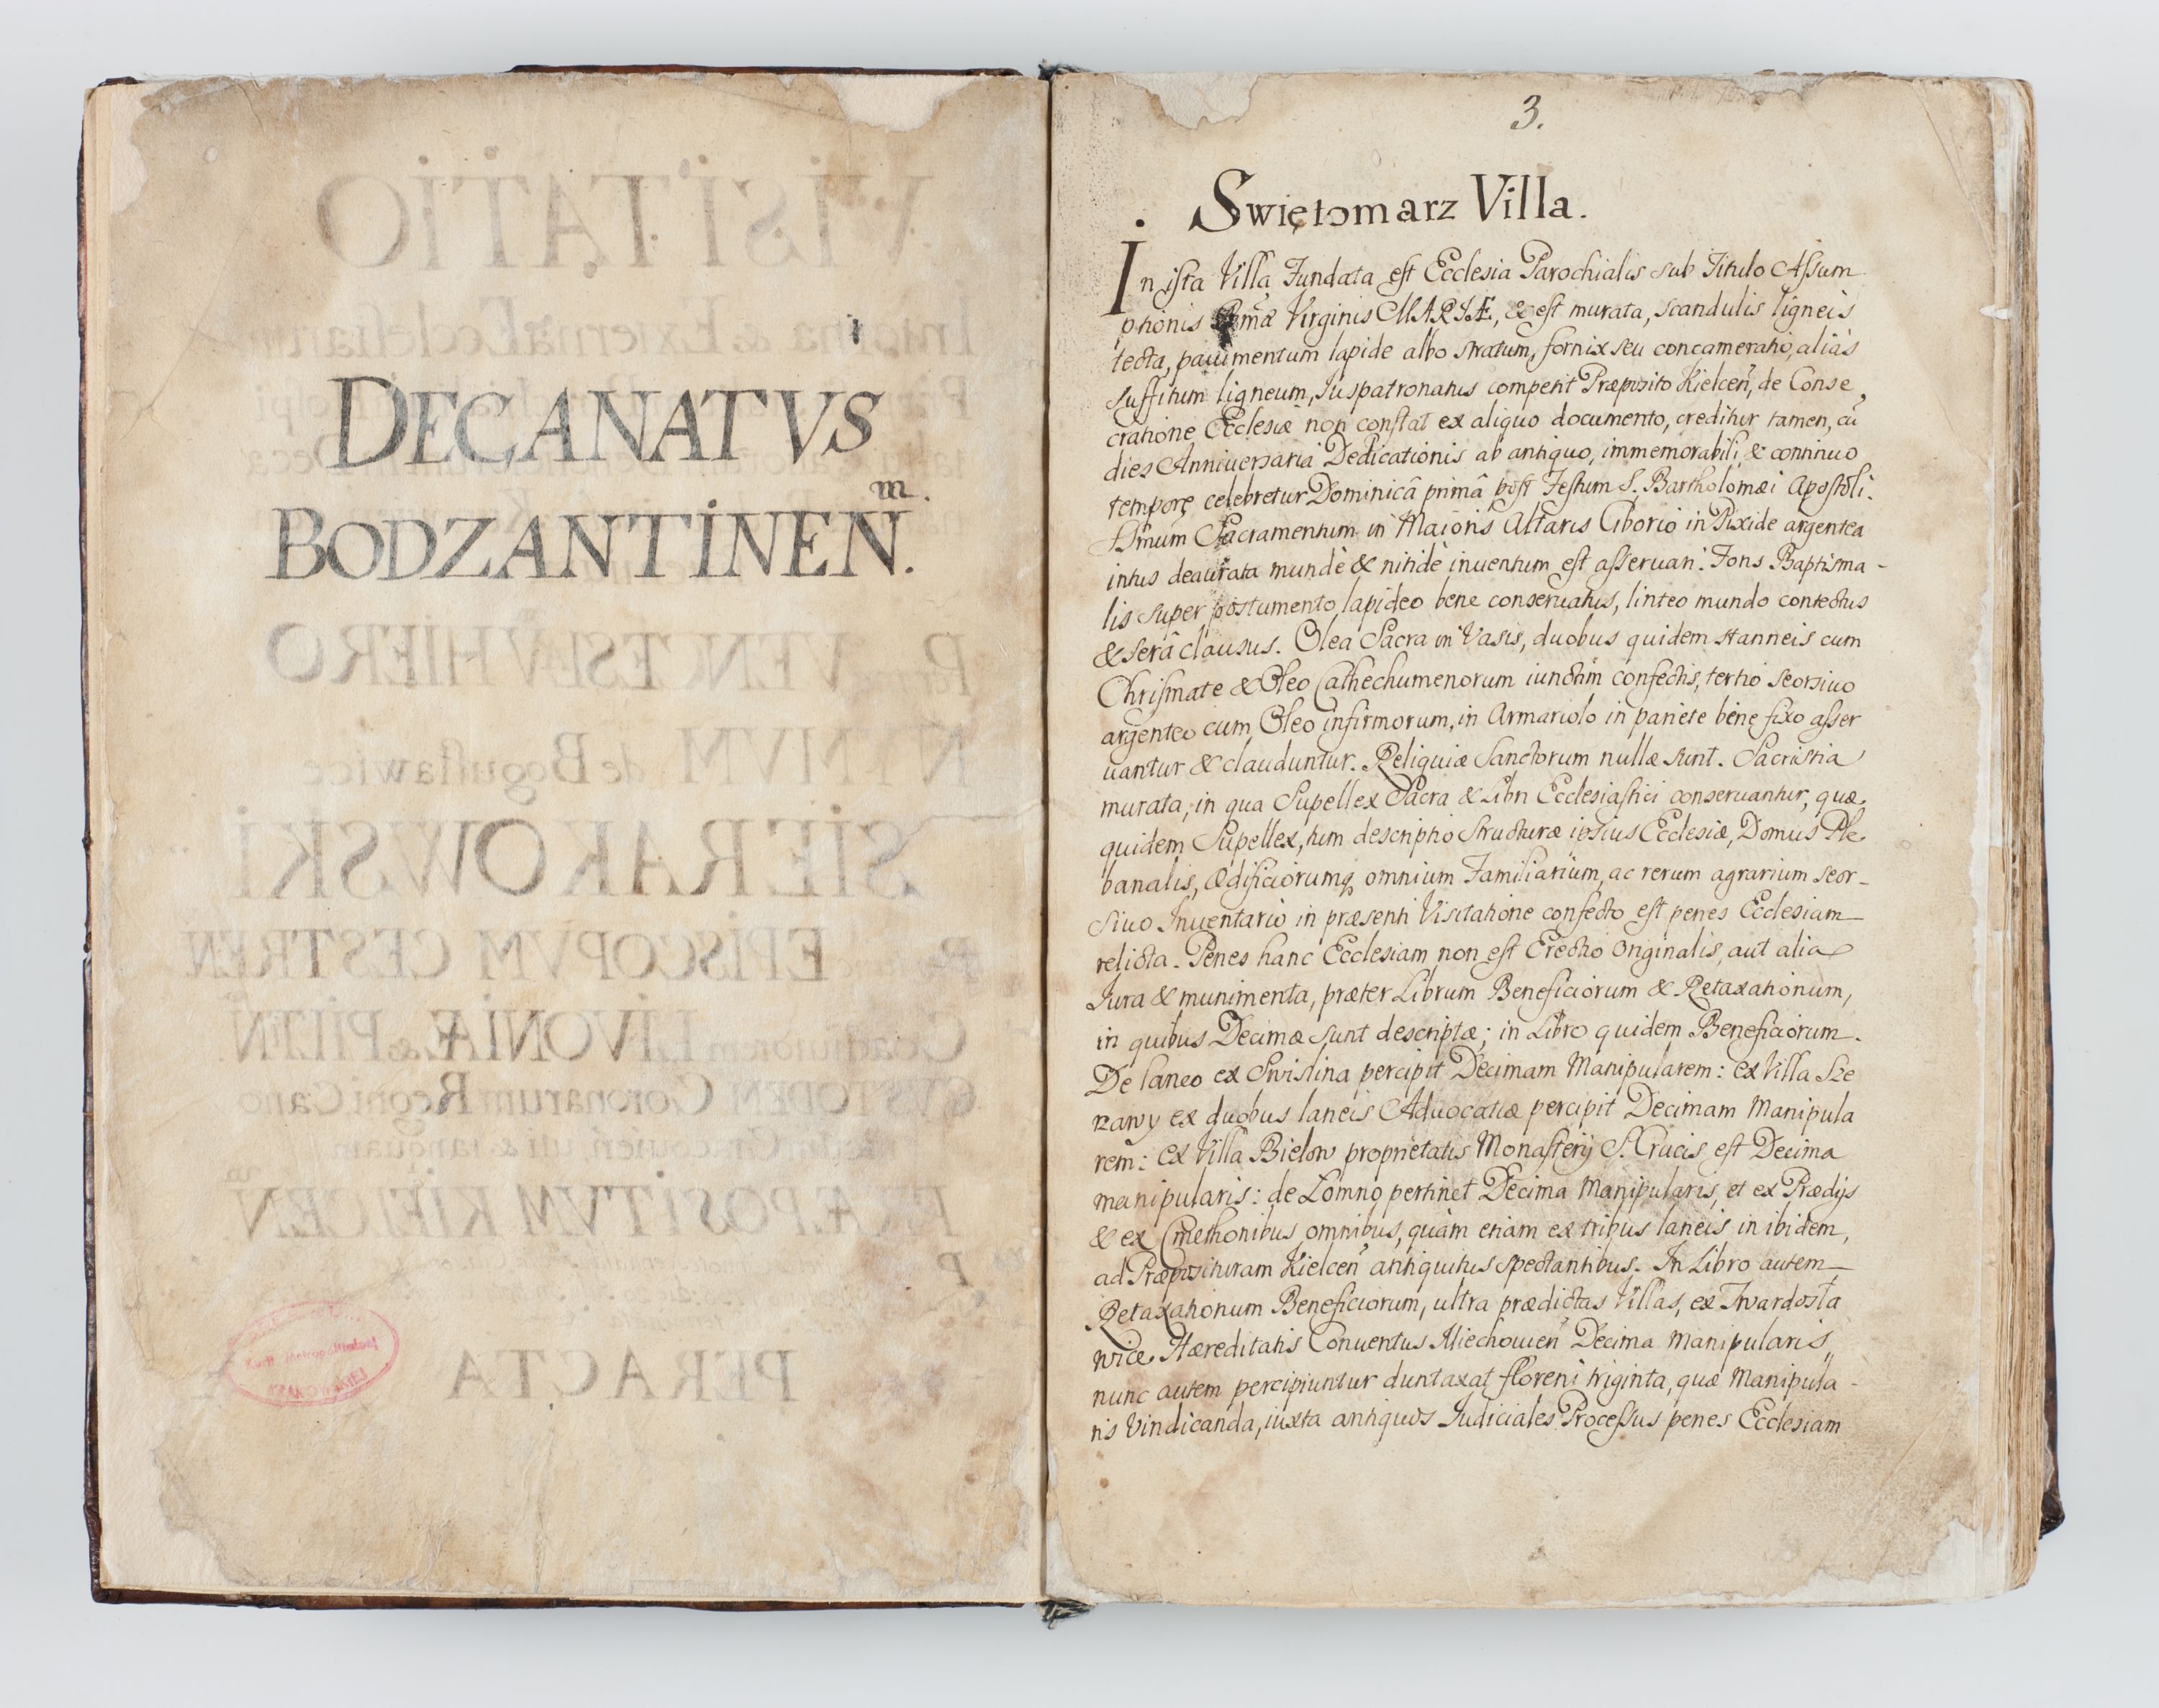 DECANATVS
BODZANTINEN.m
3.
Swiętomarz Villa.
In ista Villa Fundata est Ecclesia Parochialis sub Titulo Assum
ptionis Bṁæ Virginis MARIÆ, & est murata, scandulis ligneis
tecta, pauimentum lapide albo stratum, fornix seu concameratio, aliàs
suffitum ligneum, Juspatronatus competit Præposito Kielceñ, de Conse,
cratione Ecclesiæ non constat ex aliquo documento, creditur tamen, cũ
dies Anniuersaria Dedicationis ab antiquo, immemorabili, & continuo
tempore celebretur Dominicâ primâ post Festum S. Bartholomæi Apostoli.
SSmum Sacramentum in Maioris Altaris Ciborio in Pixide argentea
intus deaurata mundè & nitidè inuentum est asseruari. Fons Baptisma-
lis super postumento lapideo bene conseruatus, linteo mundo contectus
& serâ clausus. Olea Sacra in Vasis, duobus quidem stanneis cum
Chrismate & Oleo Cathechumenorum iunctim confectis, tertio seorsiuo
argenteo cum Oleo infirmorum, in Armariolo in pariete bene fixo asser
uantur & clauduntur. Reliquiæ Sanctorum nullæ sunt. Sacristia
murata, in qua Supellex Sacra & Libri Ecclesiastici conseruantur, quæ
quidem Supellex, tum descriptio Structuræ ipsius Ecclesiæ, Domus Ple
banalis, Ædificiorumq; omnium Familiarium, ac rerum agrarium seor-
siuo Inuentario in præsenti Visitatione confecto est penes Ecclesiam
relicta. Penes hanc Ecclesiam non est Erectio Originalis, aut alia
Jura & munimenta, præter Librum Beneficiorum & Retaxationum,
in quibus Decimæ sunt descriptæ; in Libro quidem Beneficiorum.
De laneo ex Swislina percipit Decimam Manipularem: ex Villa Sze
rzawy ex duobus laneis Aduocatiæ percipit Decimam Manipula
rem: ex Villa Bielow proprietatis Monasterij S. Crucis est Decima
manipularis: de Lomno pertinet Decima Manipularis, et ex Prædijs
& ex Cmethonibus omnibus, quàm etiam ex tribus laneis in ibidem,
ad Præposituram Kielceñ antiquitus spectantibus. In Libro autem
Retaxationum Beneficiorum, ultra prædictas Villas, ex Twardosta
wice Hæreditatis Conuentus Miechouieñ Decima Manipularis,
nunc autem percipiuntur duntaxat floreni triginta, quæ Manipula-
ris Vindicanda, iuxta antiquos Judiciales Processus penes Ecclesiam